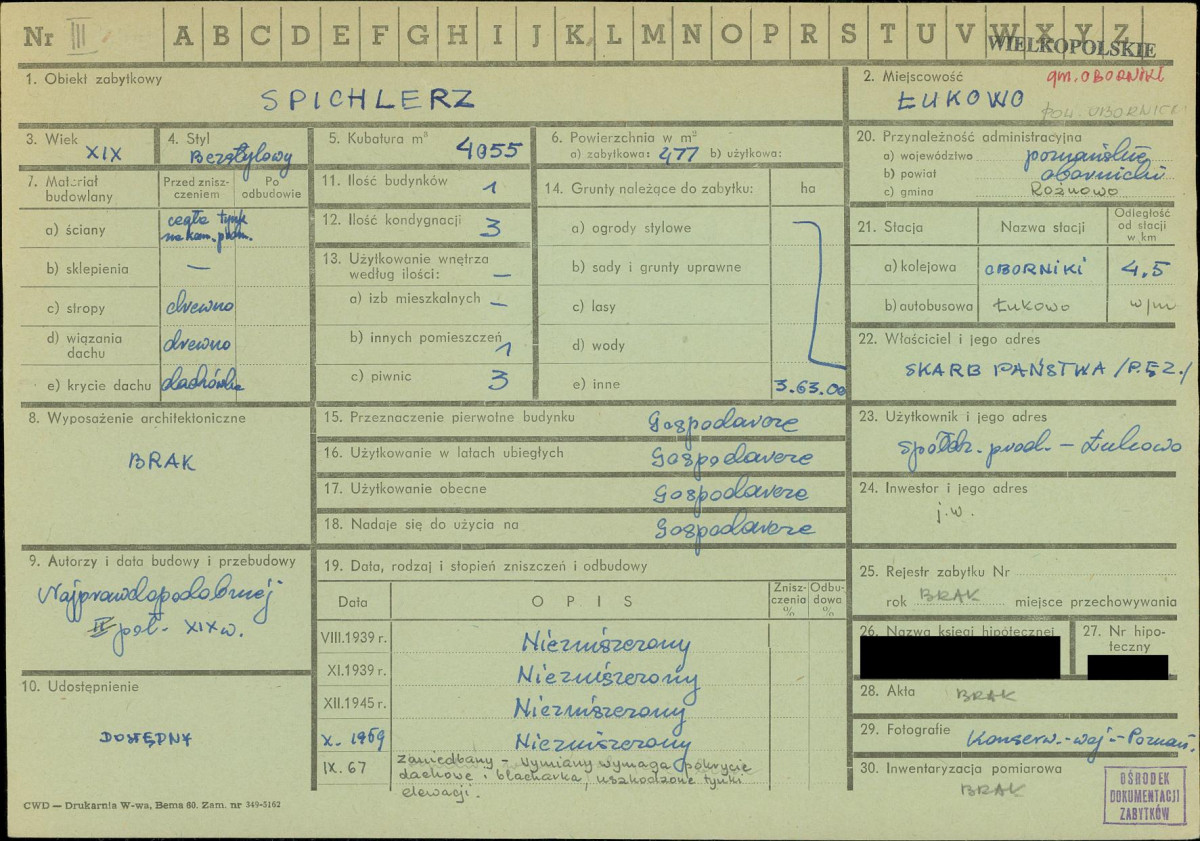 Nr III A B C D E F G H I J K L M N O P R S T U V W X Y Z
WIELKOPOLSKIE
1. Obiekt zabytkowy
SPICHLERZ
2. Miejscowość
gm. OBORNIKI
ŁUKOWO
pow. OBORNICKI
3. Wiek
XIX
4. Styl
Bezstylowy
5. Kubatura m³ 4055
6. Powierzchnia w m²
a) zabytkowa: 477 b) użytkowa:
7. Materiał budowlany
Przed zniszczeniem
Po odbudowie
a) ściany
cegła tynk
na kam. podm.
b) sklepienia —
c) stropy drewno
d) wiązania dachu drewno
e) krycie dachu dachówka
8. Wyposażenie architektoniczne
BRAK
9. Autorzy i data budowy i przebudowy
Najprawdopodobniej
II poł. XIX w.
10. Udostępnienie
DOSTĘPNY
11. Ilość budynków 1
12. Ilość kondygnacji 3
13. Użytkowanie wnętrza
według ilości: —
a) izb mieszkalnych —
b) innych pomieszczeń 1
c) piwnic 3
14. Grunty należące do zabytku: ha
a) ogrody stylowe
b) sady i grunty uprawne
c) lasy
d) wody
e) inne 3.63.00
15. Przeznaczenie pierwotne budynku Gospodarcze
16. Użytkowanie w latach ubiegłych Gospodarcze
17. Użytkowanie obecne Gospodarcze
18. Nadaje się do użycia na Gospodarcze
19. Data, rodzaj i stopień zniszczeń i odbudowy
Data OPIS Zniszczenia % Odbudowa %
VIII.1939 r. Niezniszczony
XI.1939 r. Niezniszczony
XII.1945 r. Niezniszczony
X. 1959 Niezniszczony
IX. 67 zaniedbany - wymiany wymaga pokrycie
dachowe i blacharka, uszkodzone tynki
elewacji.
20. Przynależność administracyjna
a) województwo poznańskie
b) powiat obornicki
c) gmina Rożnowo
21. Stacja Nazwa stacji Odległość od stacji w km
a) kolejowa OBORNIKI 4,5
b) autobusowa Łukowo w/m
22. Właściciel i jego adres
SKARB PAŃSTWA /P.F.Z./
23. Użytkownik i jego adres
Spółdz. prod. - Łukowo
24. Inwestor i jego adres
j.w.
25. Rejestr zabytku Nr
rok BRAK miejsce przechowywania
26. Nazwa księgi hipotecznej
27. Nr hipoteczny
28. Akta BRAK
29. Fotografie Konserw.-woj.-Poznań.
30. Inwentaryzacja pomiarowa
BRAK
OŚRODEK
DOKUMENTACJI
ZABYTKÓW
CWD — Drukarnia W-wa, Bema 60. Zam. nr 349-5162